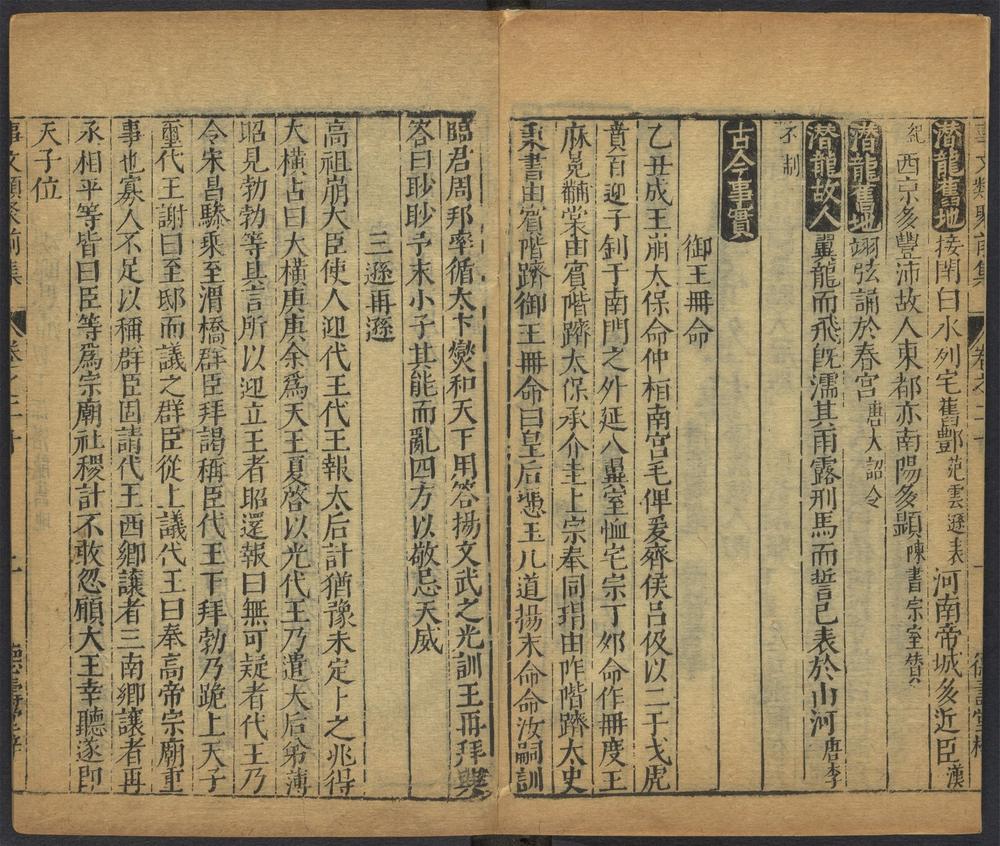 潜龍舊地接閈白水列宅舊酆范雲遜表河南帝城多近臣漢
紀西京多豐沛故人東都亦南陽多顯陳書宗室贊
潜龍舊地翊弦誦於春宮唐大詔令
潜龍故人翼龍而飛旣濡其雨露刑馬而誓已表於山河唐李
不制
古今事實
御王冊命
乙丑成王崩太保命仲桓南宮毛俾爰齊侯呂伋以二干戈虎
賁百迎子釗于南門之外延入翼室恤宅宗丁夘命作冊度王
麻冕黼裳由賓階躋太保承介圭上宗奉同瑁由阼階躋太史
秉書由賓階躋御王冊命曰皇后憑玉几道揚末命命汝嗣訓
臨君周邦率循大卞燮和天下用答揚文武之光訓王再拜興
荅曰眇眇予末小子其能而亂四方以敬忌天威
三遜再遜
高祖崩大臣使人迎代王代王報太后計猶豫未定卜之兆得
大橫占曰大橫庚庚余爲天王夏啓以光代王乃遣太后弟薄
昭見勃勃等具言所以迎立王者昭還報曰無可疑者代王乃
令宋昌驂乘至渭橋群臣拜謁稱臣代王下拜勃乃跪上天子
璽代王謝曰至邸而議之群臣從上議代王曰奉高帝宗廟重
事也寡人不足以稱群臣固請代王西鄉讓者三南鄉讓者再
丞相平等皆曰臣等爲宗廟社稷計不敢忽願大王幸聽遂即
天子位
事文類聚前集